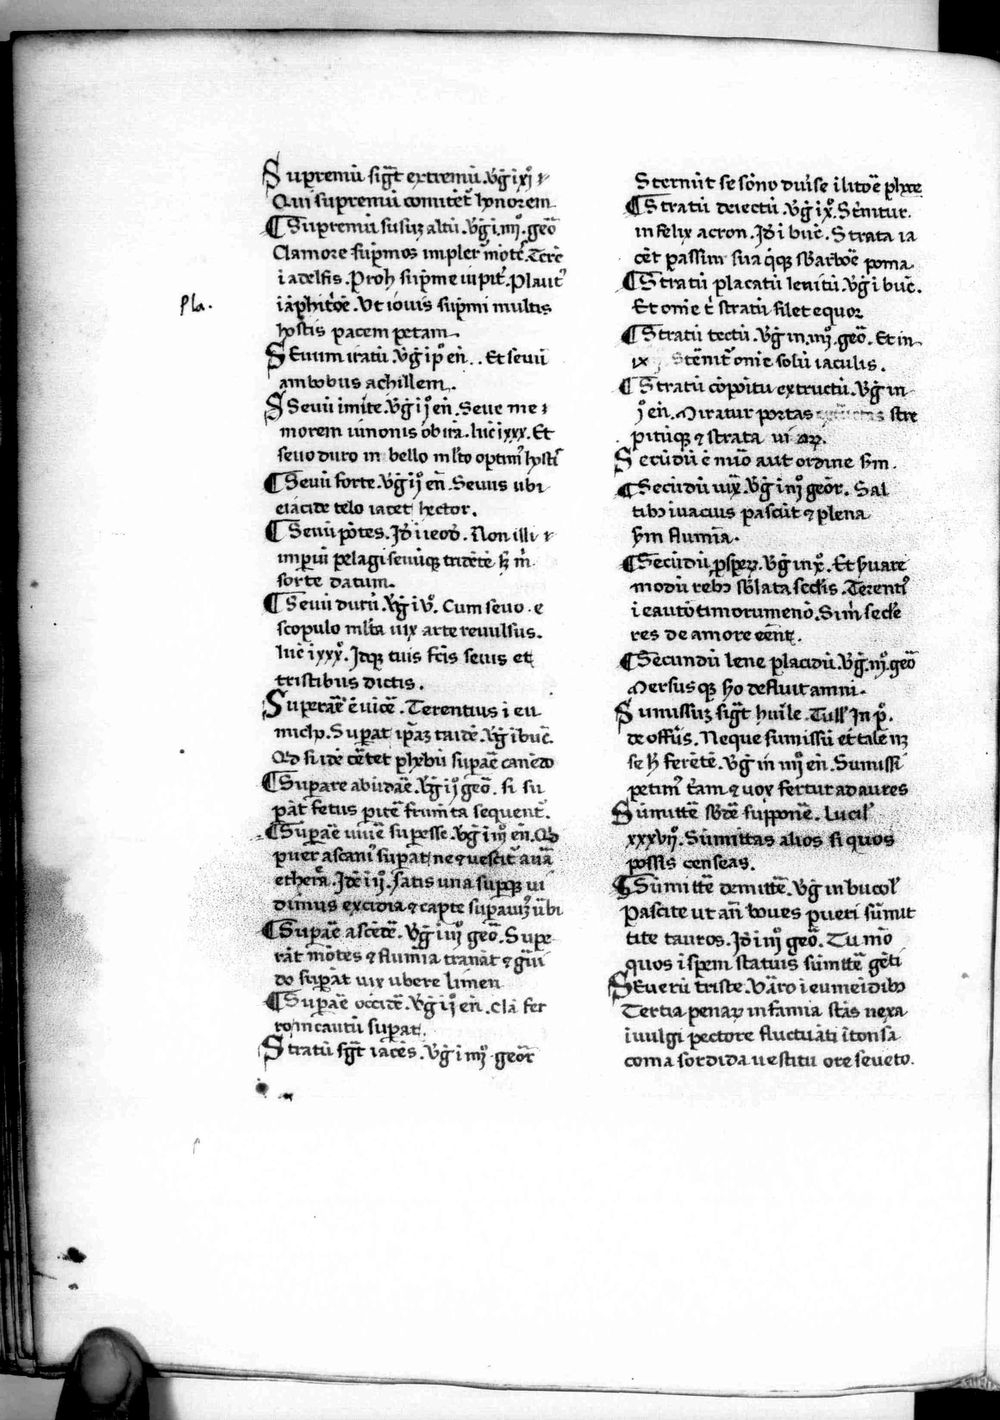 Supremū sigt̄ extremū. Vḡ i xj°
Qui supremū comitēt honorem
¶ Supremū susuꝫ altū. Vḡ i. iiij°. geō
Clamore sup̄mos impler̄ mōtes̄. Terē
i adelfis. Proh sup̄me iupit̄. Plaut⁹
Pla.
iāphit̄oē. Ut iouis sup̄mi multis
hostis pacem petam
Seuum iratū Vḡ i p° en̄.. Et seuū
ambobus achillem.
Seuū imite. Vḡ i j° en̄. Seue me
morem iunonis ob irā. luc̄ ixxx. Et
seuo duro in bello ml̄to optim⁹ hosti
¶ Seuū forte. Vḡ i j° en̄. Seuus ubi
eiacide telo iacet hector.
¶ Seuū potēs. Id̄ i eod̄. Non illi
imperiū pelagi seuūqꝫ tridētē sꝫ m̄
sorte datum.
¶ Seuū durū. Vḡ i v°. Cum seuo e
scopulo ml̄ta uix arte reuulsus.
luc̄ i xxx°. Idqꝫ tuis fc̄is seuis et
tristibus dictis.
Superar̄e ē uīcē. Terentius i eu
nuch. Supat ip̄aꝫ taidē. Vḡ i buc̄.
Qd si idē cērtet phebū supar̄e canēdo
¶ Supare abūdar̄e. Vḡ i ij° geō. si su
pāt fetus pitēr frum̄ta sequent̄.
¶ Supar̄e uiuer̄e supesse. Vḡ i iij° en̄. Qd
puer ascani⁹ supat ne ⁊ uescit̄ aurā
etherā. Id̄ i ij°. satis una supqꝫ ui
dimus excidia ⁊ capte supauim⁹ urbi
¶ Supar̄e ascēder̄e. Vḡ i iij° geō. Supe
rāt mōtes ⁊ flumīa tranāt ⁊ gr̄ui
do supāt uix ubere limen
¶ Supar̄e occider̄e. Vḡ i ij° en̄. Clā fer
ro incautū supat.
Stratū sgt̄ iacēs. Vḡ i iiij° geor̄
Sternūt se sōno diu̇se i litor̄e phoce
¶ Stratū deiectū. Vḡ i x°. Stērnitur
infelix acron. Id̄ i buc̄. Strata ia
cēt passim sua q̄qꝫ sb arbor̄e poma
¶ Stratū placatū lenitū. Vḡ i buc̄.
Et omē t̄ stratū silet equor
¶ Stratū tectū. Vḡ in. iiij°. geō. Et in
ix Stērnit̄ omē solū iaculis.
¶ Stratū cōpoitū extructū. Vḡ in
j° en̄. Miratur portas stre
pitūqꝫ ⁊ strata uiarꝫ.
Secūdū ē nūo aut ordine sm̄.
¶ Secūdū iuxta. Vḡ i iij° geor̄. Sal
tibꝫ i uacuis pascūt ⁊ plena
sm̄ flumīa.
¶ Secūdū psperꝫ. Vḡ in x°. Et suare
modū rebꝫ sblata secūdis. Terenti⁹
i eautōtimorumenō. Sint̄ secūde
res de amore eēnt.
¶ Secundū lene placidū. Vḡ. iij°. geō
Mersusqꝫ scdo defluit amni.
Sumissuꝫ sigt̄ huīle. Tull⁹ In p°.
de offi̇s. Neque sumissū et talē nꝫ
se h ferētē. Vḡ in iiij° en̄. Sumissi
petim⁹ t̄ram ⁊ uox fertur ad aures
Sūmitter̄e sbder̄e supponer̄e. Lucil⁹
xxxvij°. Sūmittas alios si quos
possis censeas.
¶ Sūmitter̄e demitter̄e. Vḡ in bucol⁹
Pascite ut an̄ boues pueri sūmit
tite tauros. Id̄ i iij° geō. Tu mō
quos i spem statuis sūmitter̄e gēti
Seuerū triste. Varro i eumeidibꝫ
Tertia penarꝫ infamia stās nexa
i uulgi pectore fluctuāti ītonsa
coma sordida uestitu ore seueto.